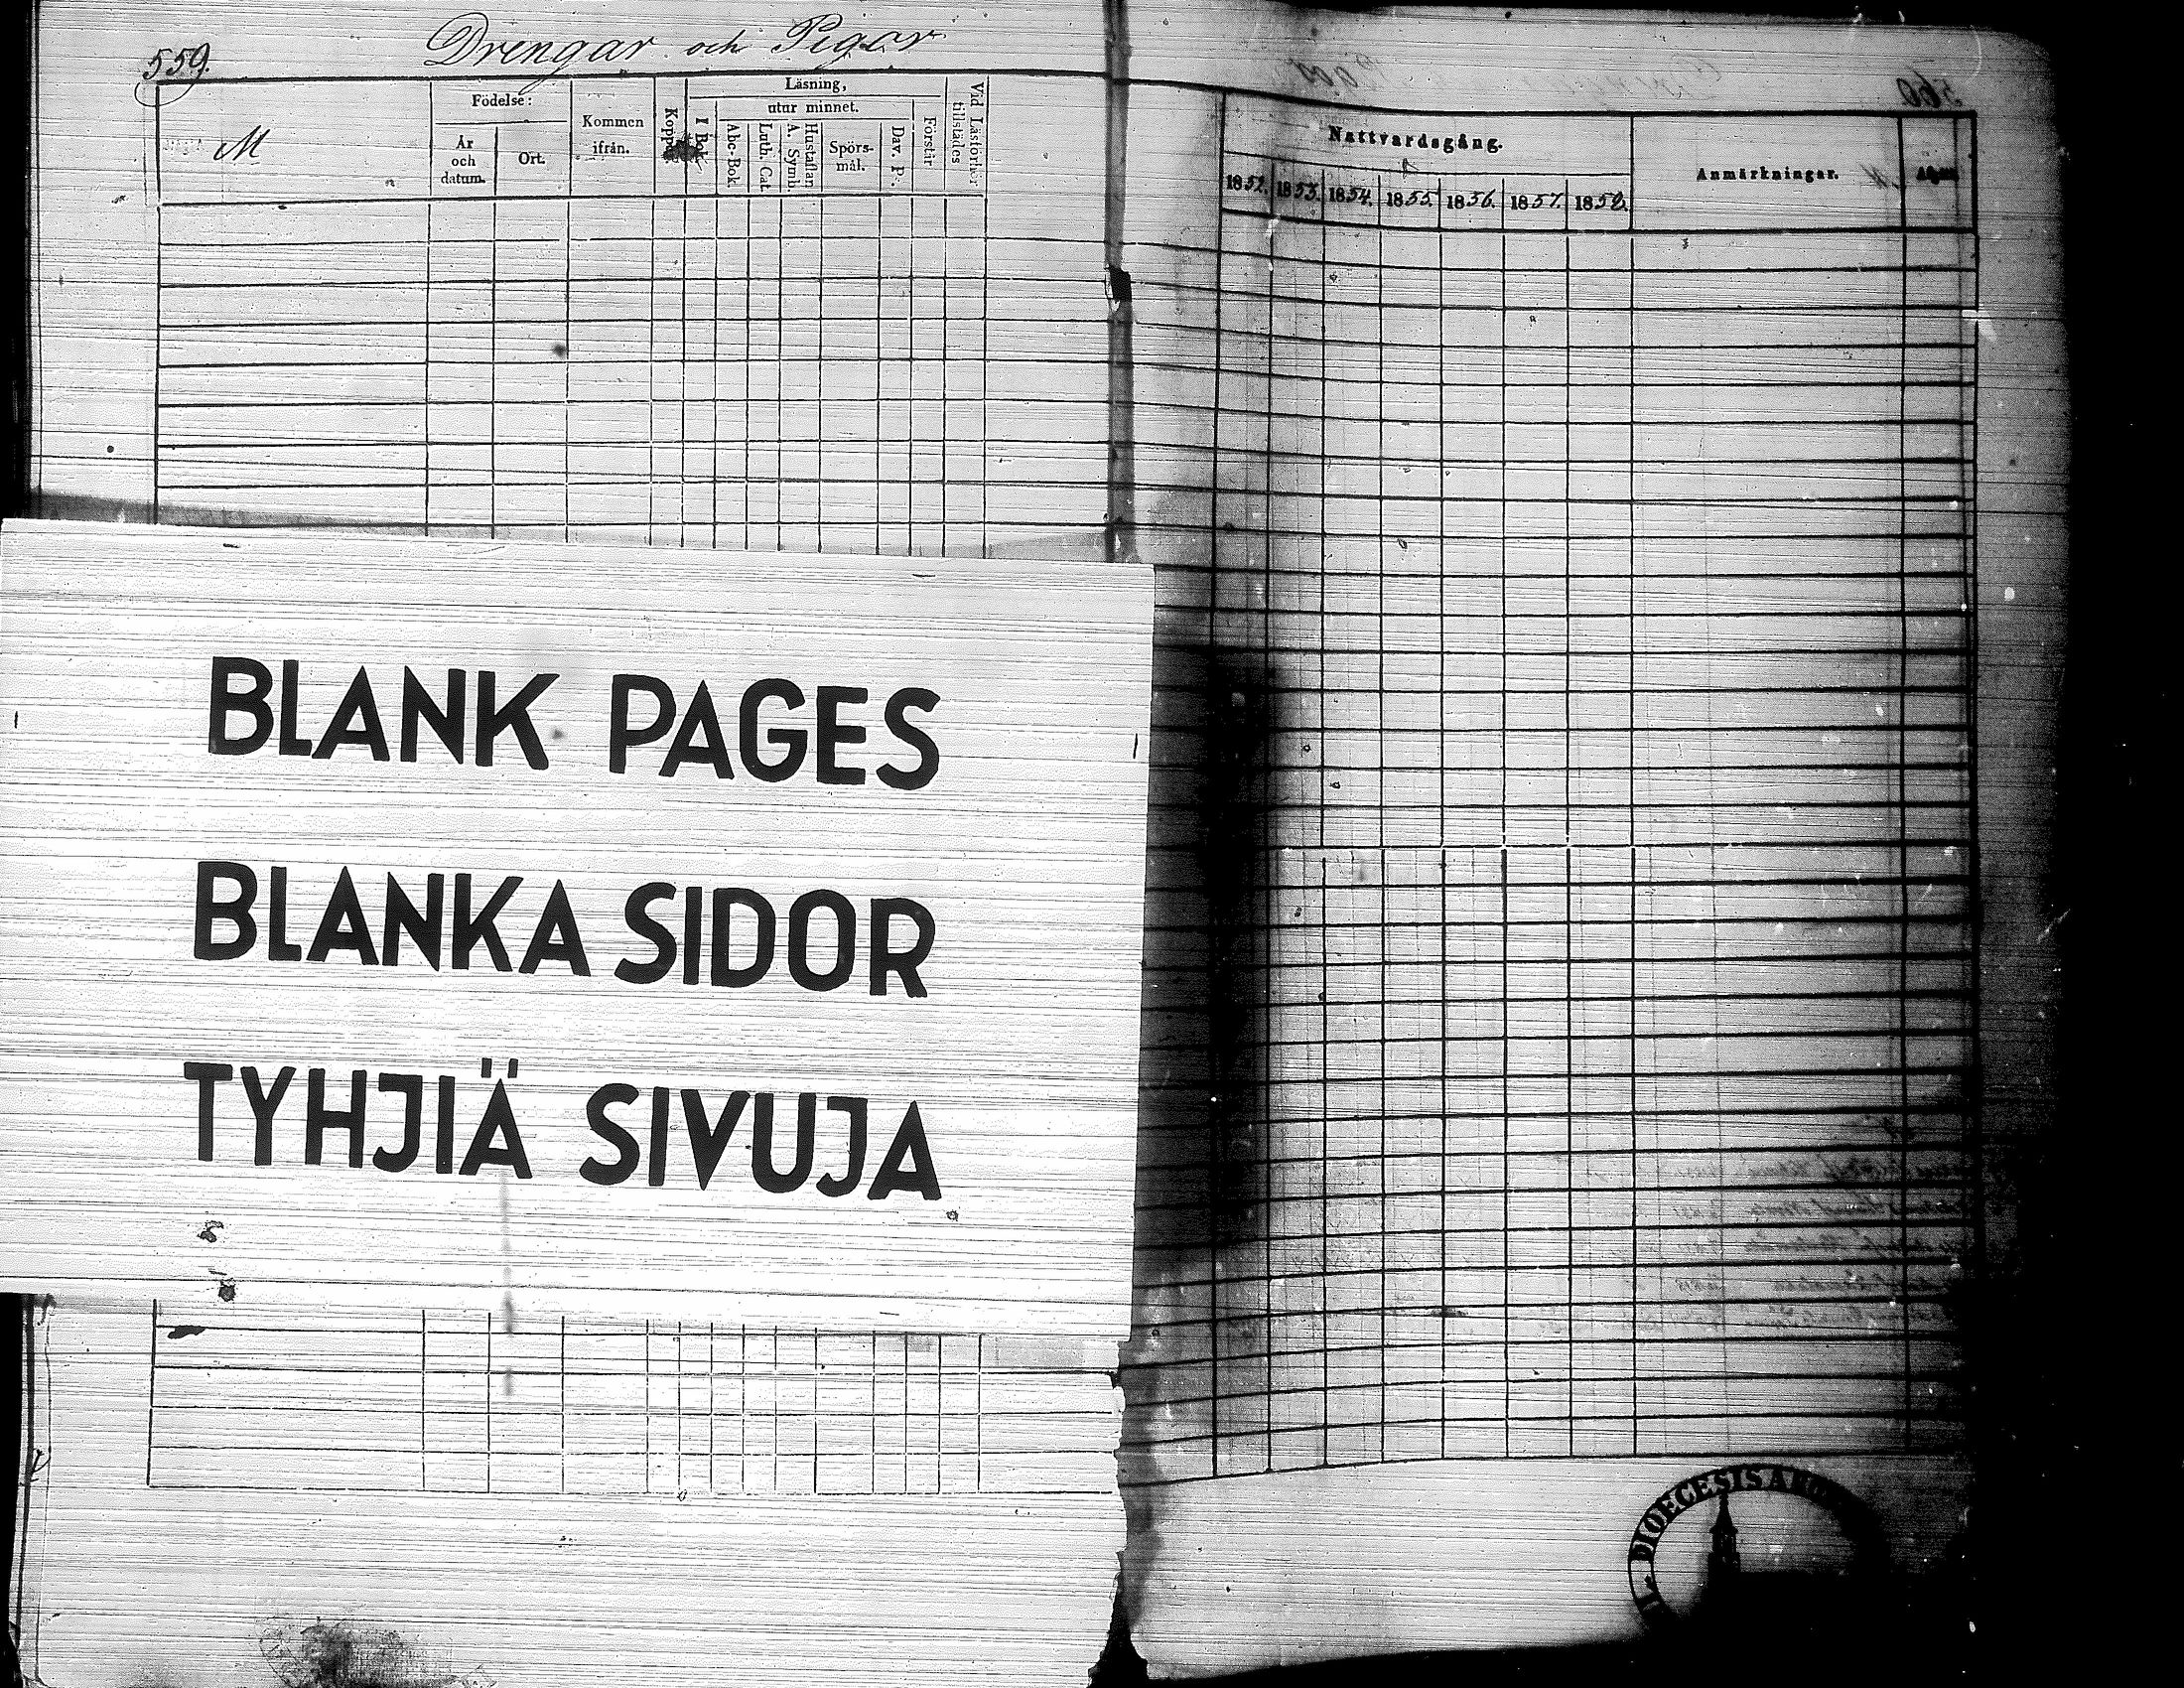 559.
Drengar och Pigar
M
Födelse:
År
och
datum.
Ort.
Kommen
ifrån.
Koppor
Läsning,
I Bok.
utur minnet.
Abc-Bok.
Luth. Cat.
A. Symb.
Hustaflan
Spörs-
mål.
Dav. Ps.
Förstår
Vid Läsförhör
tillstädes
Nattvardsgång.
1852.
1853.
1854.
1855.
1856.
1857.
1858.
Anmärkningar.
560
BLANK PAGES
BLANKA SIDOR
TYHJIÄ SIVUJA
DIOECESIS